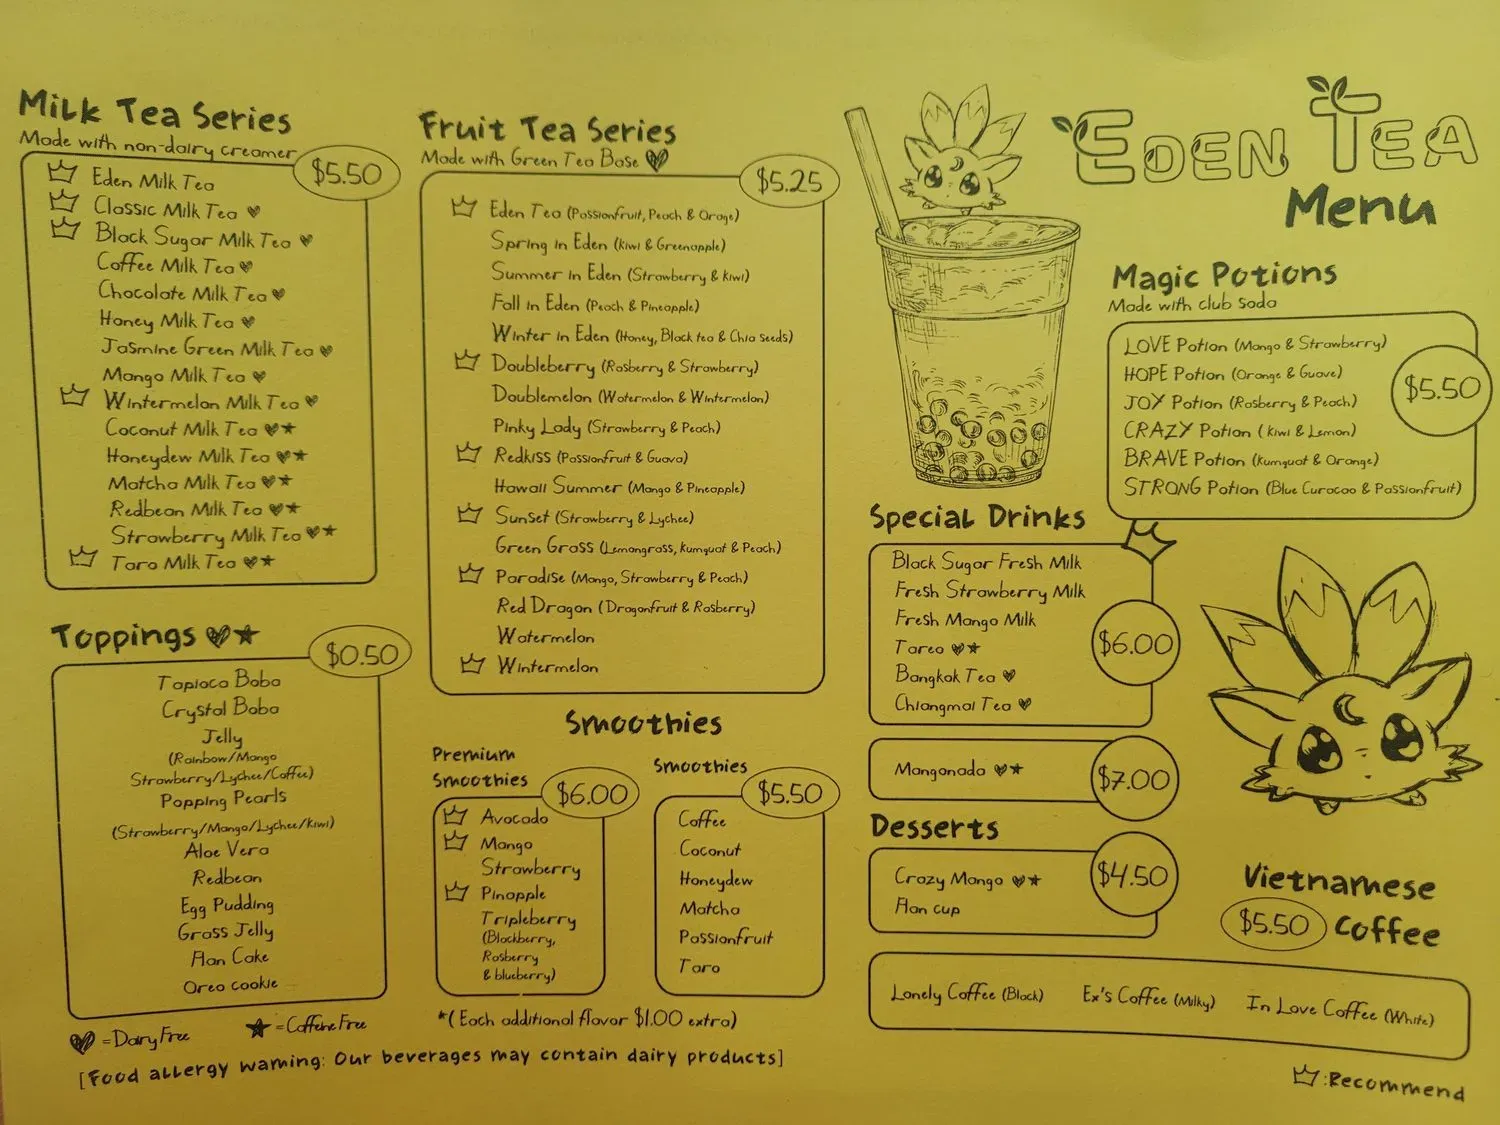 Milk Tea Series
Made with non-dairy creamer
$5.50
Eden Milk Tea
Classic Milk Tea
Black Sugar Milk Tea
Coffee Milk Tea
Chocolate Milk Tea
Honey Milk Tea
Jasmine Green Milk Tea
Mango Milk Tea
Wintermelon Milk Tea
Coconut Milk Tea
Honeydew Milk Tea
Matcha Milk Tea
Redbean Milk Tea
Strawberry Milk Tea
Taro Milk Tea
Toppings
$0.50
Tapioca Boba
Crystal Boba
Jelly
(Rainbow/Mango
Strawberry/Lychee/Coffee)
Popping Pearls
(Strawberry/Mango/Lychee/Kiwi)
Aloe Vera
Redbean
Egg Pudding
Grass Jelly
Flan Cake
Oreo cookie
=Dairy Free
=Caffeine Free
[Food allergy warning: Our beverages may contain dairy products]
Fruit Tea Series
Made with Green Tea Base
$5.25
Eden Tea (Passionfruit, Peach & Orage)
Spring in Eden (Kiwi & Greenapple)
Summer in Eden (Strawberry & Kiwi)
Fall in Eden (Peach & Pineapple)
Winter in Eden (Honey, Black tea & Chia Seeds)
Doubleberry (Rasberry & Strawberry)
Doublemelon (Watermelon & Wintermelon)
Pinky Lady (Strawberry & Peach)
Redkiss (Passionfruit & Guava)
Hawaii Summer (Mango & Pineapple)
Sunset (Strawberry & Lychee)
Green Grass (Lemongrass, Kumquat & Peach)
Paradise (Mango, Strawberry & Peach)
Red Dragon (Dragonfruit & Rasberry)
Watermelon
Wintermelon
Smoothies
Premium
Smoothies
$6.00
Avocado
Mango
Strawberry
Pinapple
Tripleberry
(Blackberry,
Rasberry
& blueberry)
Smoothies
$5.50
Coffee
Coconut
Honeydew
Matcha
Passionfruit
Taro
*(Each additional flavor $1.00 extra)
Eden Tea
Menu
Magic Potions
Made with club soda
$5.50
LOVE Potion (Mango & Strawberry)
HOPE Potion (Orange & Guave)
JOY Potion (Rasberry & Peach)
CRAZY Potion (Kiwi & Lemon)
BRAVE Potion (Kumquat & Orange)
STRONG Potion (Blue Curacao & Passionfruit)
Special Drinks
Black Sugar Fresh Milk
Fresh Strawberry Milk
Fresh Mango Milk
Tareo
Bangkok Tea
Chiangmai Tea
$6.00
Mangonada
$7.00
Desserts
Crazy Mango
Flan cup
$4.50
Vietnamese
Coffee
$5.50
Lonely Coffee (Black)
Ex's Coffee (Milky)
In Love Coffee (White)
:Recommend